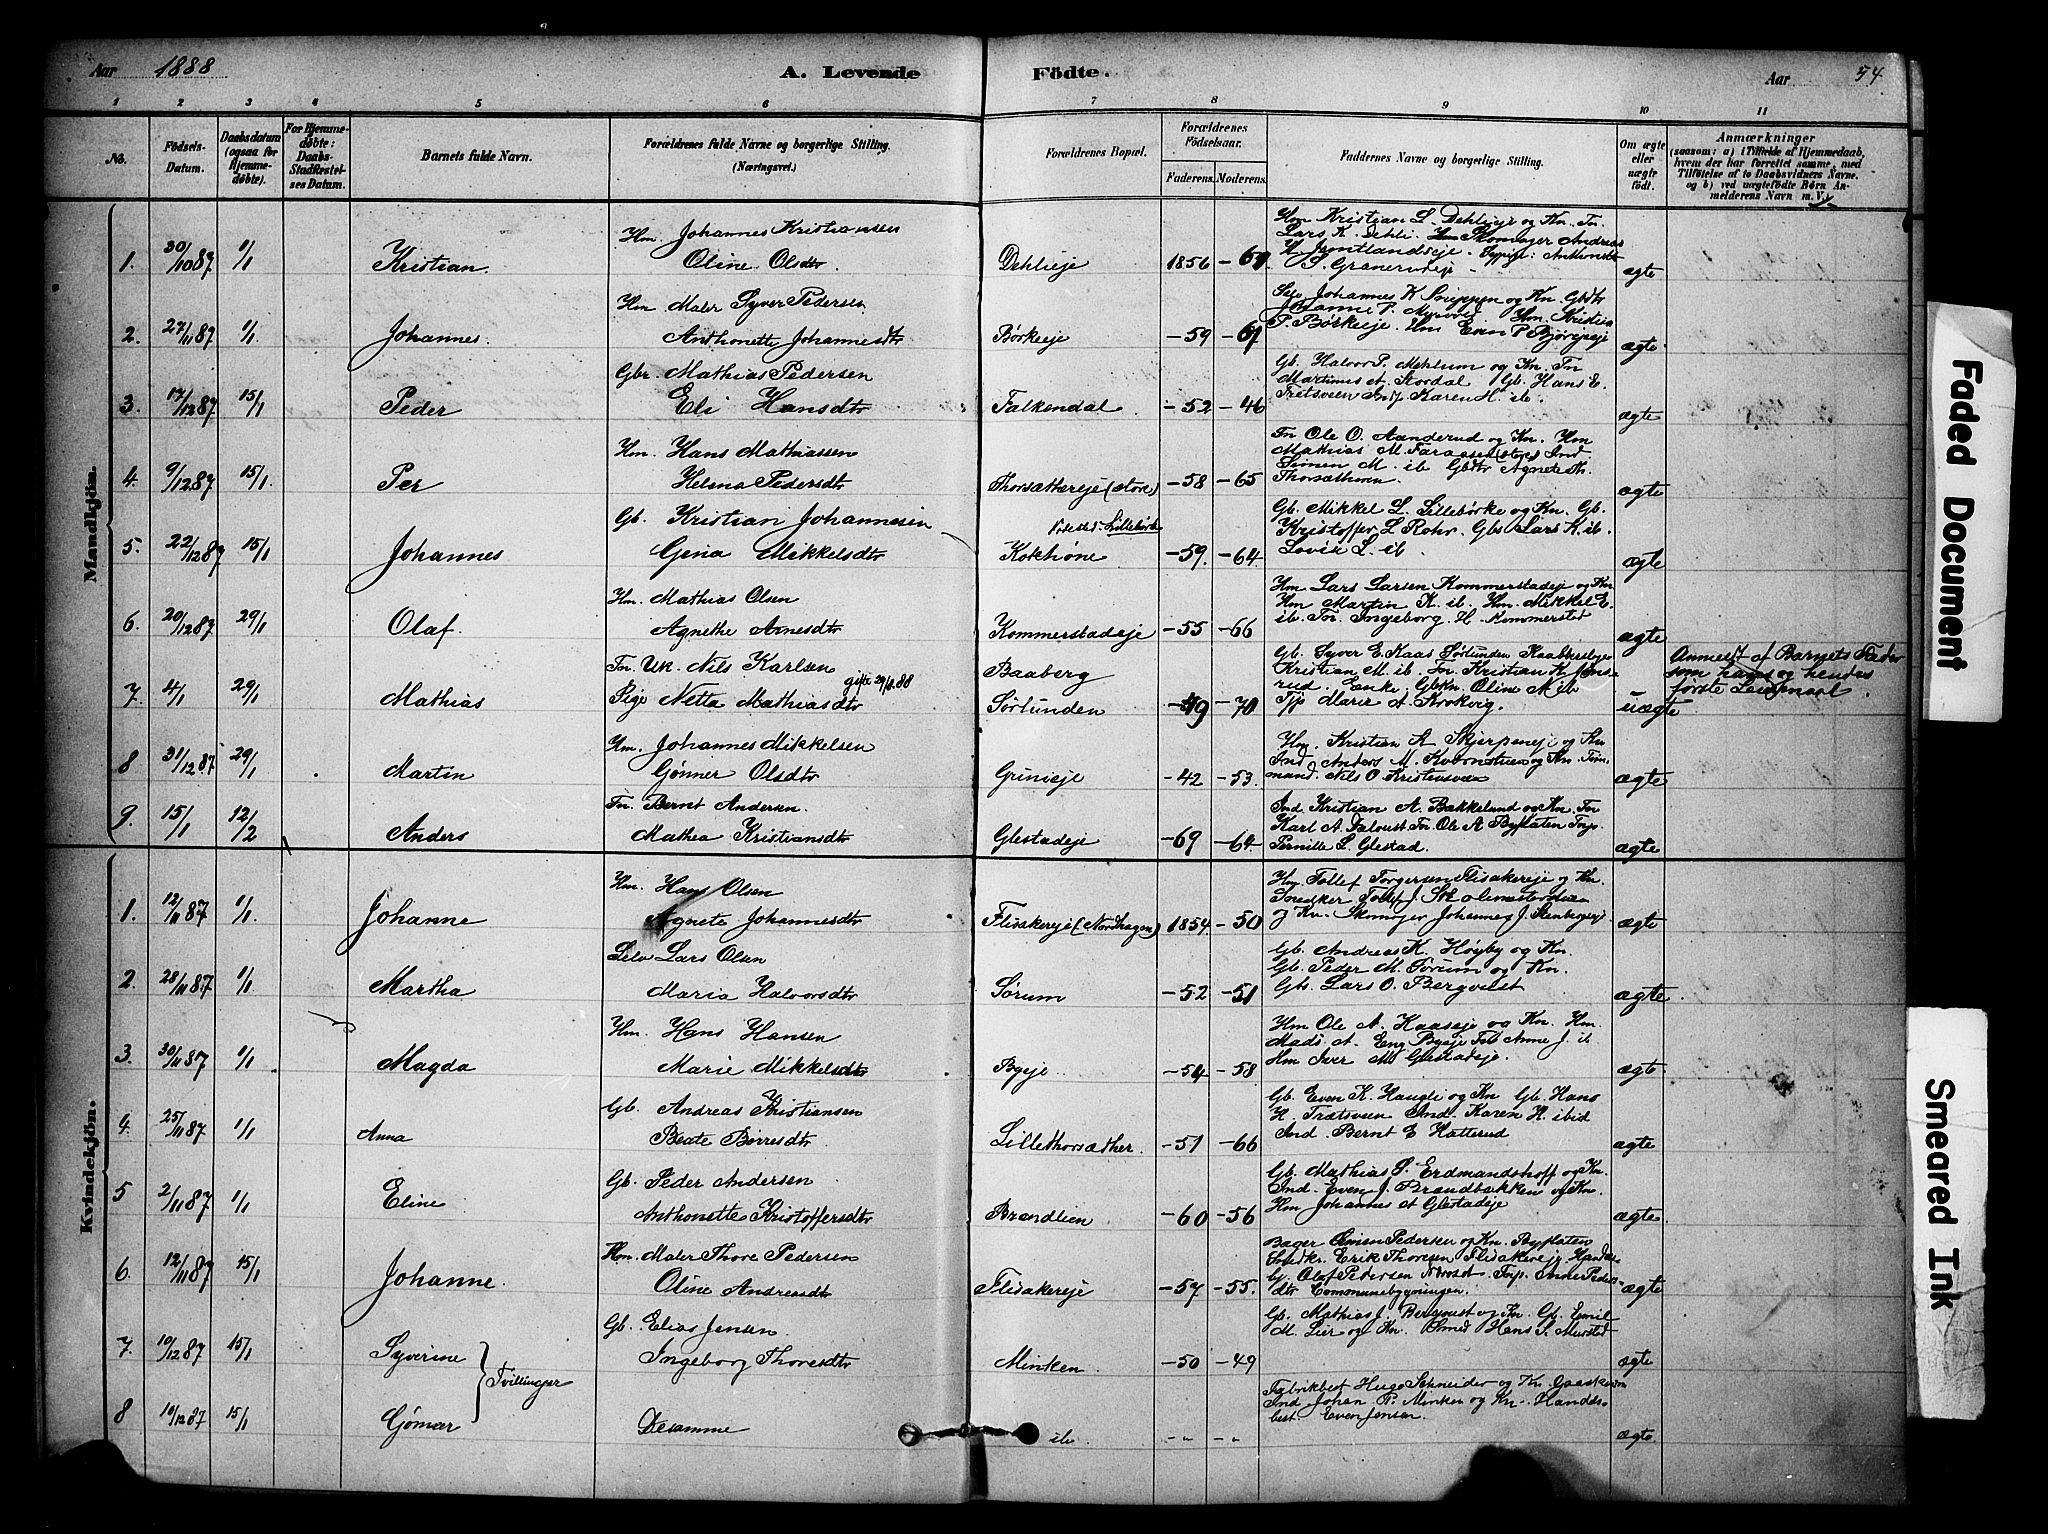 Aar 1888
A. Levende Födte.
Aar 54
1 2 3 4 5 6 7 8 9 10 11
No.
Födsels-Datum.
Daabsdatum (ogsaa for Hjemmedøbte).
For Hjemmedøbte: Daabs-Stadfæstelses Datum.
Barnets fulde Navn.
Forældrenes fulde Navne og borgerlige Stilling. (Næringsvei.)
Forældrenes Bopæl.
Forældrenes Födselsaar.
Faderens. Moderens.
Faddernes Navne og borgerlige Stilling.
Om ægte eller uægte født.
Anmærkninger
(saasom: a) i Tilfælde af Hjemmedaab, hvem der har forrettet samme, med Tilföielse af to Daabsvidners Navne. og b) ved uægtefødte Börn Anmelderens Navn m. V.)
Mandkjön.
1. 30/10 87 1/1 Kristian. Hm. Johannes Kristiansen
Oline Olsdtr Dehlieje 1856 ægte
Hm Kristian L. Dehlieje og Kn. Fn.
Lars K. Dehli. Skomager Andreas
2. 27/11 87 1/1. Johannes. Hm. Maler Syver Pedersen
Anthonette Johannesdtr Børkeeje -59 -67 ægte
Selv Johannes K Snippen og Kn. Gbdtr
P. Børkeeje. Hm Even P. Bjørgeeje
3. 17/12 87 15/1 Peder Gbr. Mathias Pedersen
Eli Hansdtr Falkendal. -52 -46 ægte
Gb. Halvor P. Mehlum og Kn. Fn
Martinus A. Stordal. Gb. Hans E.
Tretsveen Ind. Karen H. ib.
4. 9/12 87 15/1. Per Hm. Hans Mathiassen
Helena Pedersdtr Thorsæthereje (store) -58 -65 ægte
Fn Ole O. Aanderud og Kn. Hm
Mathias M. Faraasen (store) Ind
Simen M. ib Gbdtr Agnethe
Thorsætheren
5. 22/12 87 15/1 Johannes Gb. Kristian Johannesen
Gina Mikkelsdtr Fødested: Lillebørke
Kolthøne -59. -64. ægte
Gb. Mikkel L. Lillebørke og Kn. Gb.
Kristoffer L Rohr. Gbs Lars K. ib.
Lovise L. ib.
6. 20/12 87 29/1 Olaf. Hm. Mathias Olsen
Agnethe Arnesdtr Kommerstadeje -55 -66 ægte
Hm Lars Larsen Kommerstadeje og Kn
Hm Martin K. ib. Hm. Mikkel E.
ib. Fn. Ingeborg. H. Kommerstad
7. 4/1 29/1 Mathias Fn. Uk. Nils Karlsen gifte 29/1.88
Pige Netta Mathiasdtr Baaberg
Sørlunden -70 uægte
Gb. Syver E. Kaas Sørlunden
Kristian M. ib Fn Kristian H.
rud. Enke, Gbkn. Oline A. ib
Tjp Marie A. Krokvig.
Anmeldt af Barnets Fader
som hans og hendes
første Leiermaal.
8 31/12 87 29/1 Martin Hm. Johannes Mikkelsen
Gønner Olsdtr Grinieje -42 -53. ægte
Hm. Kristian A Skjerpeneje og Kn
Ind Anders M. Kvernstuen og Kn. Tøm-
mand. Nils O. Kristensveen
9. 15/1 12/2 Anders Fn. Bernt Andersen.
Mathea Kristiansdtr Glestadeje -69 -64. ægte
Ind. Kristian A. Bakkelund og Kn. Fn
Karl A. Fn. Ole A Byflaten Tnp.
Pernille L. Glestad.
Kvindekjön.
1. 12/11 87 1/1. Johanne Hm. Hans Olsen
Agnete Johannesdtr Flisakereje (Nordhagen) 1854. -50 ægte
Hm. Tollef Torgersen Flisakereje og Kn.
Snedker Tollef J. Skolemesterstuen
og Kn. Skomager Johannes J. Stenbergeje
2. 28/11 87 1/1. Martha Selv Lars Olsen
Maria Halvorsdtr Sørum -52 -51 ægte.
Gb. Andreas K. Høyby og Kn.
Gb. Peder M. Sørum og Kn.
Gbs. Lars O. Bergvust
3. 30/11 87 1/1 Magda Hm. Hans Hansen
Marie Mikkelsdtr Byeje -54 -58 ægte
Hm Ole A. Kaaseje og Kn. Hm.
Mads A. Eng Byeje Fn Anne J. ib
Hm Iver M. Glestadeje.
4. 25/11 87 1/1 Anna Gb. Andreas Kristiansen
Beate Børresdtr. Lillethorsæther. -51 -66 ægte
Gb. Even K. Haugli og Kn Gb. Hans
H. Trætsveen Ind. Karen H. ibid
Ind. Bernt E Hatterud
5 2/11 87 1/1 Eline Gb. Peder Andersen
Anthonette Kristoffersdtr Brendlien -60 -56 ægte.
Gb. Mathias S. Erdmandshoff og Kn.
Ind. Even J. Brandbakken og Kn.
Hm Johannes A Glestadeje
6. 12/11 87 15/1 Johanne. Hm. Maler Thore Pedersen
Oline Andreasdtr Flisakereje -57 -55. ægte
Bager Simen Pedersen og Kn. Byflaten
Snedkr. Erik Thoresen Flisakereje
Olaf Pedersen Tnp. Anne Peders-
dtr Communebygningen.
7. 10/12 87 15/1 Syverine Gb. Elias Jensen.
Ingeborg Thoresdtr Minken. -50 -49 ægte
Tvillinger
Gb. Mathias J. Bergvust og Kn. Gb. Emil
M. Lier og Kn. Smed Hans S. Murstad
8 10/12 87 15/1 Gømar Desamme ib. -"- -"- ægte.
Fabrikbest Hugo Schneider og Kn. Gaaskeven
Ind Johan P. Minken og Kn. Handels-
best Even Jensen.
Faded Document
Smeared Ink